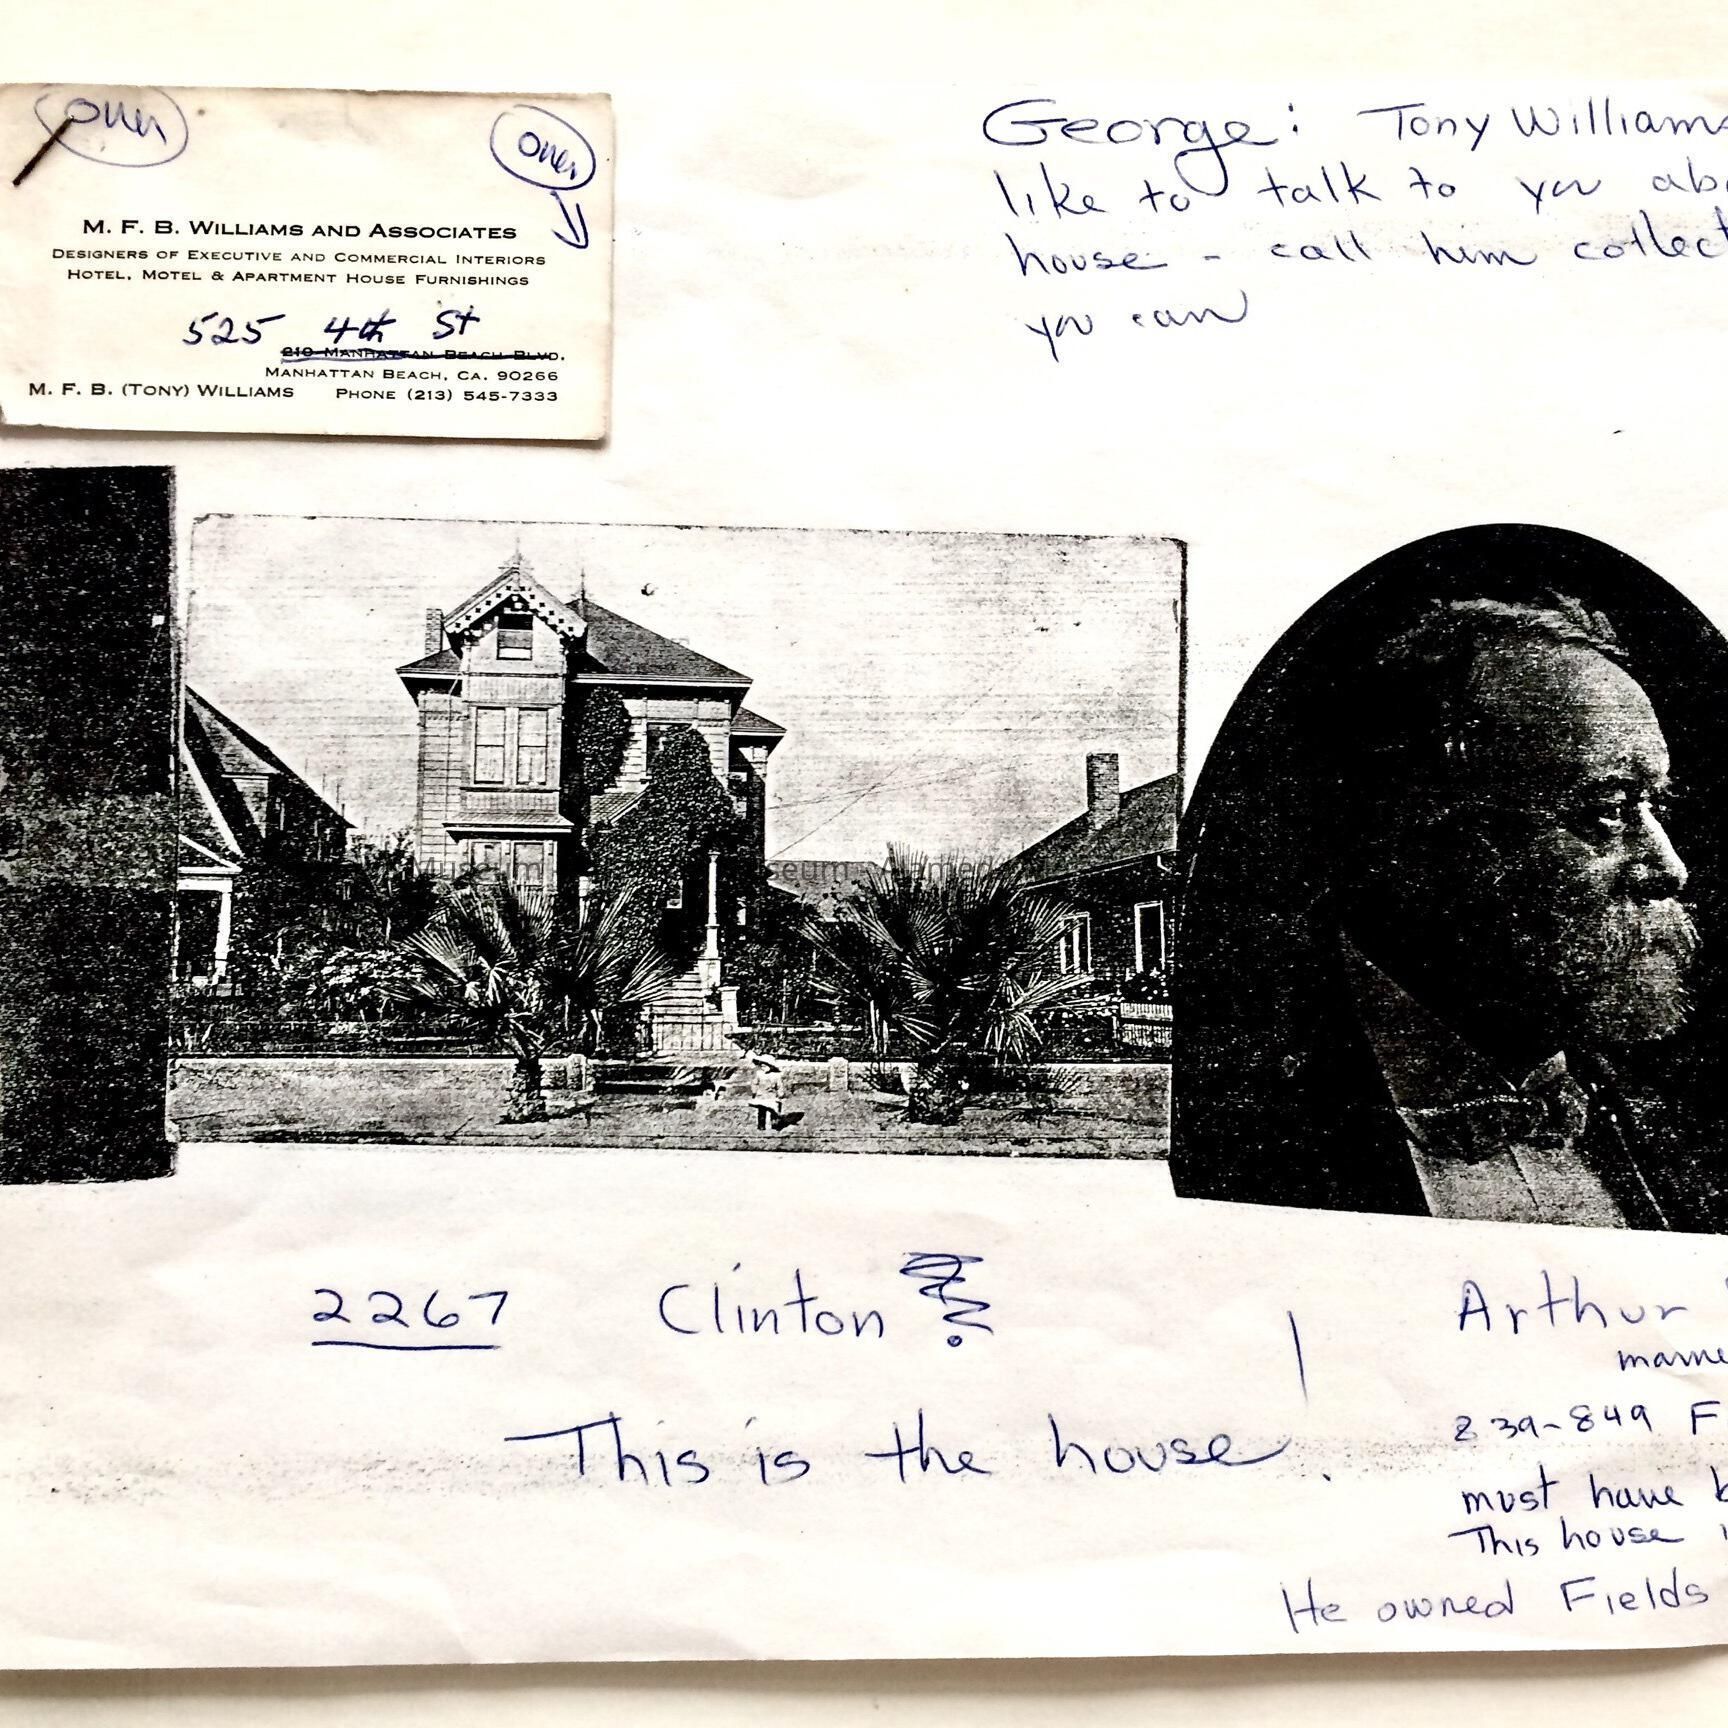 over
over
M. F. B. WILLIAMS AND ASSOCIATES
DESIGNERS OF EXECUTIVE AND COMMERCIAL INTERIORS
HOTEL, MOTEL & APARTMENT HOUSE FURNISHINGS
525 4th St
210 MANHATTAN BEACH BLVD.
MANHATTAN BEACH, CA. 90266
M. F. B. (TONY) WILLIAMS PHONE (213) 545-7333
George: Tony Williams
like to talk to you
house - call him collect
you can
Museum Museum - Alameda
2267 Clinton
This is the house.
Arthur
839-849 F
must have
This house
He owned Fields